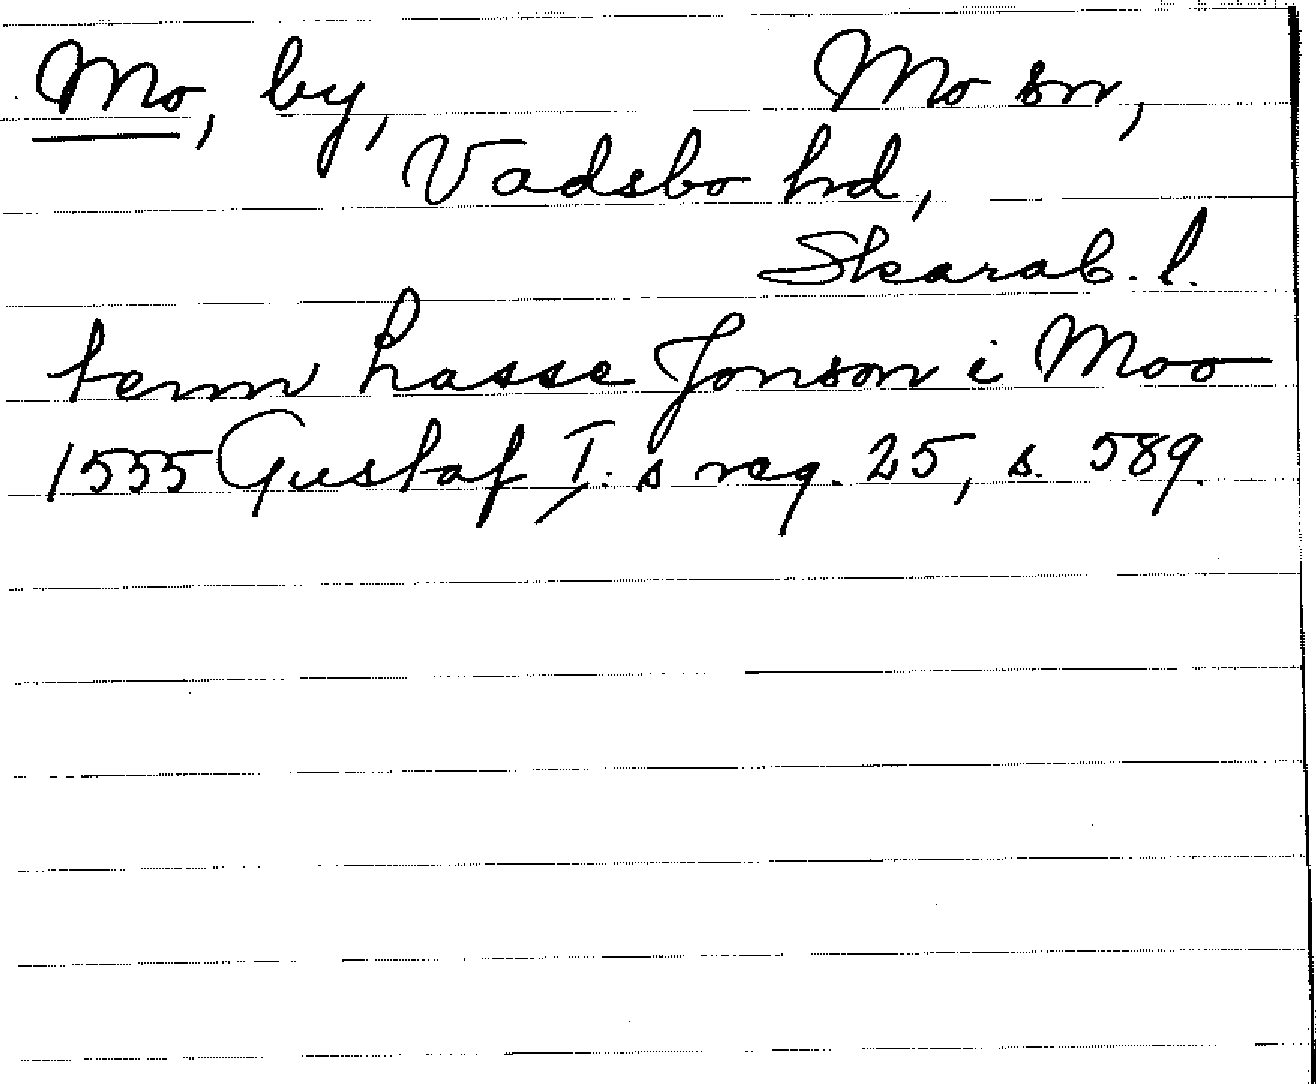 Mo, by, Mo sn,
Vadsbo hd,
Skarab. l.
temn Lasse Jonson i Moo
1555 Gustaf I:s reg. 25, s. 589.